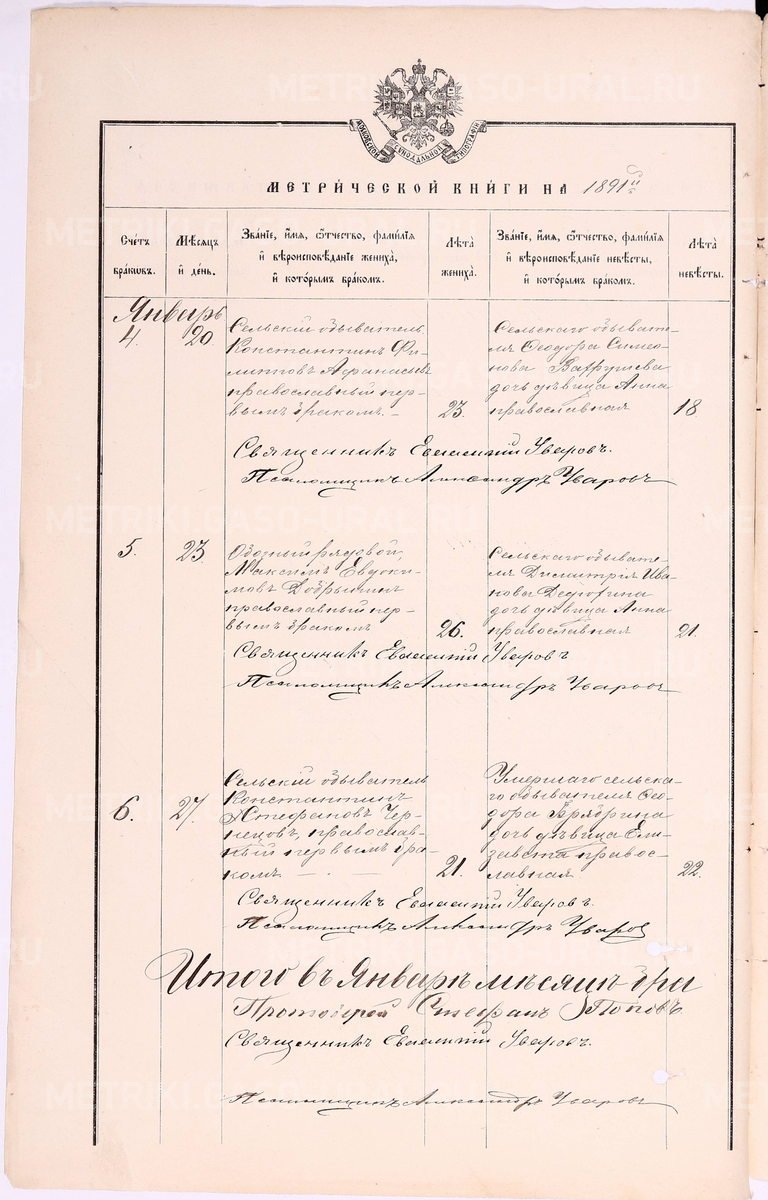 МОСКОВСКОЙ СѴНОДАЛЬНОЙ ТИПОГРАФІИ
МЕТРИЧЕСКОЙ КНИГИ НА 1891й
Счетъ браковъ.
Мѣсяцъ и день.
Званіе, имя, отчество, фамилія и вѣроисповѣданіе жениха, и которымъ бракомъ.
Лѣта жениха.
Званіе, имя, отчество, фамилія и вѣроисповѣданіе невѣсты, и которымъ бракомъ.
Лѣта невѣсты.
Январь
4. 20.
Сельскій обыватель
Константинъ Фи-
липповъ Афанасьевъ
православный пер-
вымъ бракомъ. –
23.
Сельскаго обывате-
ля Ѳеодора Симео-
нова Вахрушева
дочь дѣвица Анна
православная
18
Священникъ Евлампій Уваровъ.
Псаломщикъ Александръ Уваровъ
5. 23.
рядовой
Максимъ Евдоки-
мовъ Добрынинъ
православный пер-
вымъ бракомъ
26.
Сельскаго обывате-
ля Димитрія Ива-
нова
дочь дѣвица Анна
православная
21.
Священникъ Евлампій Уваровъ
Псаломщикъ Александръ Уваровъ
6. 27.
Сельскій обыватель
Константинъ
Стефановъ Чер-
нецовъ, православ-
ный первымъ бра-
комъ.
21.
Умершаго сельска-
го обывателя Ѳео-
дора
дочь дѣвица Ели-
завета правос-
лавная
22.
Священникъ Евлампій Уваровъ.
Псаломщикъ Александръ Уваровъ
Итого въ Январѣ мѣсяцѣ
Протоіерей Стефанъ Поповъ
Священникъ Евлампій Уваровъ.
Псаломщикъ Александръ Уваровъ